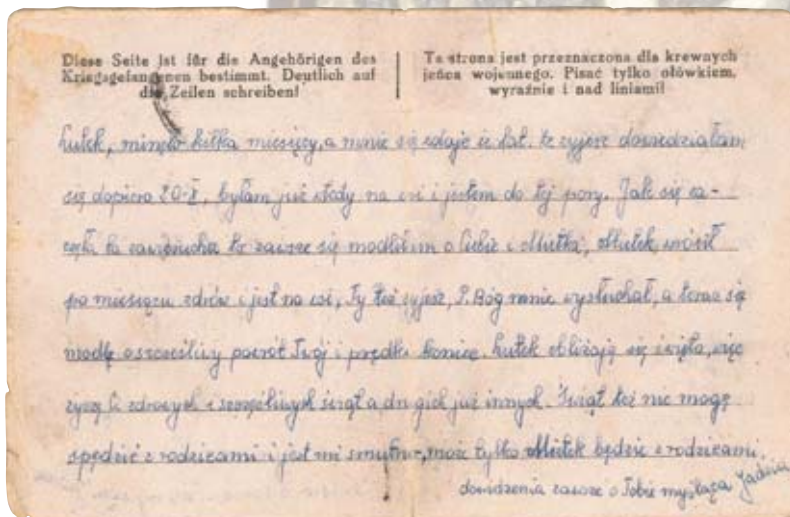 Diese Seite ist für die Angehörigen des
Kriegsgefangenen bestimmt. Deutlich auf
die Zeilen schreiben!
Ta strona jest przeznaczona dla krewnych
jeńca wojennego. Pisać tylko ołówkiem,
wyraźnie i nad liniami!
Lutek, minęło kilka miesięcy, a mnie się zdaje że lat. że żyjesz dowiedziałam
się dopiero 20-X, byłam już wtedy na wsi i jestem do tej pory. Jak się za-
częła ta zawierucha to zawsze się modliłam o Ciebie i Mietka, Mietek wrócił
po miesiącu zdrów i jest na wsi, Ty też żyjesz, P. Bóg mnie wysłuchał, a teraz się
modlę o szczęśliwy powrót Twój i prędki koniec. Lutek zbliżają się święta, więc
życzę Ci zdrowych i szczęśliwych świąt a drugich już innych. Świąt też nie mogę
spędzić z rodzicami i jest mi smutno, może tylko Mietek będzie z rodzicami.
dowidzenia zawsze o Tobie myśląca Jadzia